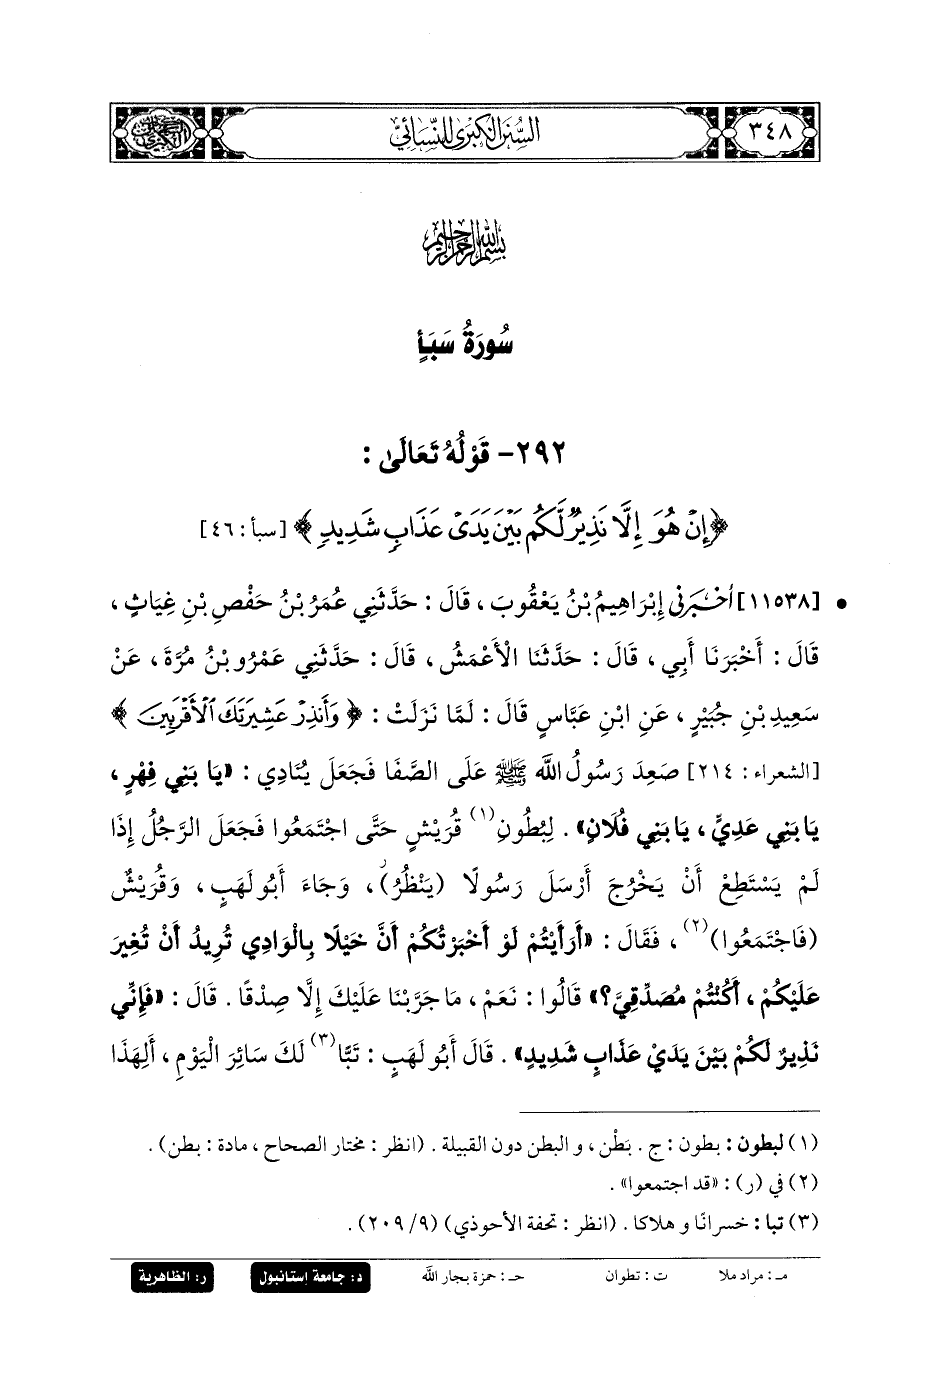 ٣٤٨
السنن الكبرى للنسائي
بسم الله الرحمن الرحيم
سُورَةُ سَبَأٍ
٢٩٢- قَوْلُهُ تَعَالَىٰ :
﴿إِنْ هُوَ إِلَّا نَذِيرٌ لَّكُم بَيْنَ يَدَىْ عَذَابٍ شَدِيدٍ﴾ [سبأ: ٤٦]
• [١١٥٣٨] أَخْبَرَنِي إِبْرَاهِيمُ بْنُ يَعْقُوبَ، قَالَ : حَدَّثَنِي عُمَرُ بْنُ حَفْصِ بْنِ غِيَاثٍ ،
قَالَ : أَخْبَرَنَا أَبِي ، قَالَ : حَدَّثَنَا الْأَعْمَشُ ، قَالَ : حَدَّثَنِي عَمْرُو بْنُ مُرَّةَ ، عَنْ
سَعِيدِ بْنِ جُبَيْرٍ ، عَنِ ابْنِ عَبَّاسٍ قَالَ : لَمَّا نَزَلَتْ : ﴿ وَأَنذِرْ عَشِيرَتَكَ ٱلْأَقْرَبِينَ ﴾
[الشعراء : ٢١٤] صَعِدَ رَسُولُ اللَّه ﷺ عَلَى الصَّفَا فَجَعَلَ يُنَادِي : «يَا بَنِي فِهْرٍ ،
يَا بَنِي عَدِيٍّ ، يَا بَنِي فُلَانٍ» . لِبُطُونِ(١) قُرَيْشٍ حَتَّى اجْتَمَعُوا فَجَعَلَ الرَّجُلُ إِذَا
لَمْ يَسْتَطِعْ أَنْ يَخْرُجَ أَرْسَلَ رَسُولًا (يَنْظُرُ) ، وَجَاءَ أَبُو لَهَبٍ ، وَقُرَيْشٌ
(فَاجْتَمَعُوا)(٢) ، فَقَالَ : «أَرَأَيْتُمْ لَوْ أَخْبَرْتُكُمْ أَنَّ خَيْلًا بِالْوَادِي تُرِيدُ أَنْ تُغِيرَ
عَلَيْكُمْ ، أَكُنْتُمْ مُصَدِّقِيَّ؟» قَالُوا : نَعَمْ ، مَا جَرَّبْنَا عَلَيْكَ إِلَّا صِدْقًا . قَالَ : «فَإِنِّي
نَذِيرٌ لَكُمْ بَيْنَ يَدَيْ عَذَابٍ شَدِيدٍ» . قَالَ أَبُو لَهَبٍ : تَبًّا(٣) لَكَ سَائِرَ الْيَوْمِ ، أَلِهَذَا
(١) لبطون : بطون : ج . بَطْن ، والبطن دون القبيلة . (انظر : مختار الصحاح ، مادة : بطن) .
(٢) في (ر) : «قد اجتمعوا» .
(٣) تبا : خسرانًا وهلاكا . (انظر : تحفة الأحوذي) (٩/ ٢٠٩) .
مـ : مراد ملا ت : تطوان حـ : حمزة بجار الله د : جامعة إستانبول ر : الظاهرية